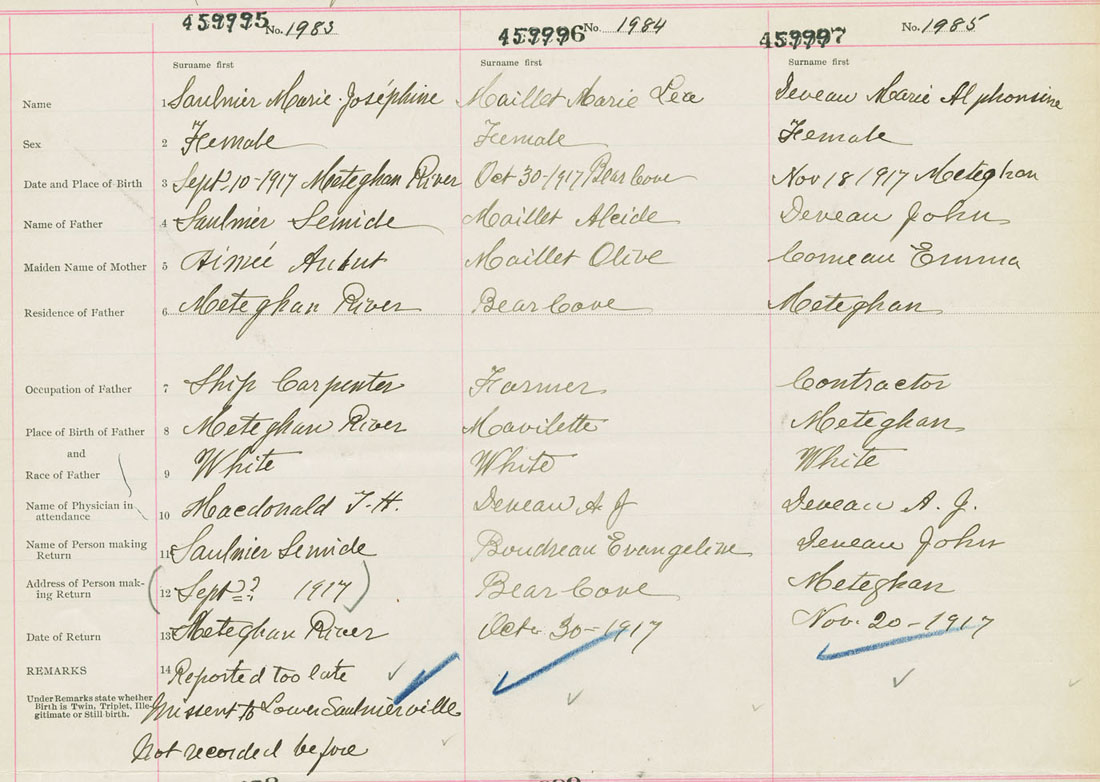 459995 No. 1983 459996 No. 1984 459997 No. 1985
Surname first Surname first Surname first
Name 1 Saulnier Marie Joséphine Maillet Marie Lea Deveau Marie Alphonsine
Sex 2 Female Female Female
Date and Place of Birth 3 Sept. 10-1917 Meteghan River Oct 30-1917 Bear Cove Nov 18 1917 Meteghan
Name of Father 4 Saulnier Semide Maillet Alcide Deveau John
Maiden Name of Mother 5 Aimée Maillet Olive Comeau Emma
Residence of Father 6 Meteghan River Bear Cove Meteghan
Occupation of Father 7 Ship Carpenter Farmer Contractor
Place of Birth of Father 8 Meteghan River Mavilette Meteghan
and
Race of Father 9 White White White
Name of Physician in
attendance 10 Macdonald T. H. Deveau A J Deveau A. J.
Name of Person making
Return 11 Saulnier Semide Boudreau Evangeline Deveau John
Address of Person mak-
ing Return 12 (Sept ? 1917) Bear Cove Meteghan
Date of Return 13 Meteghan River Octr 30-1917 Nov. 20-1917
REMARKS 14 Reported too late
Under Remarks state whether
Birth is Twin, Triplet, Ille-
gitimate or Still birth.
Missent to Lower Saulnierville
Not recorded before